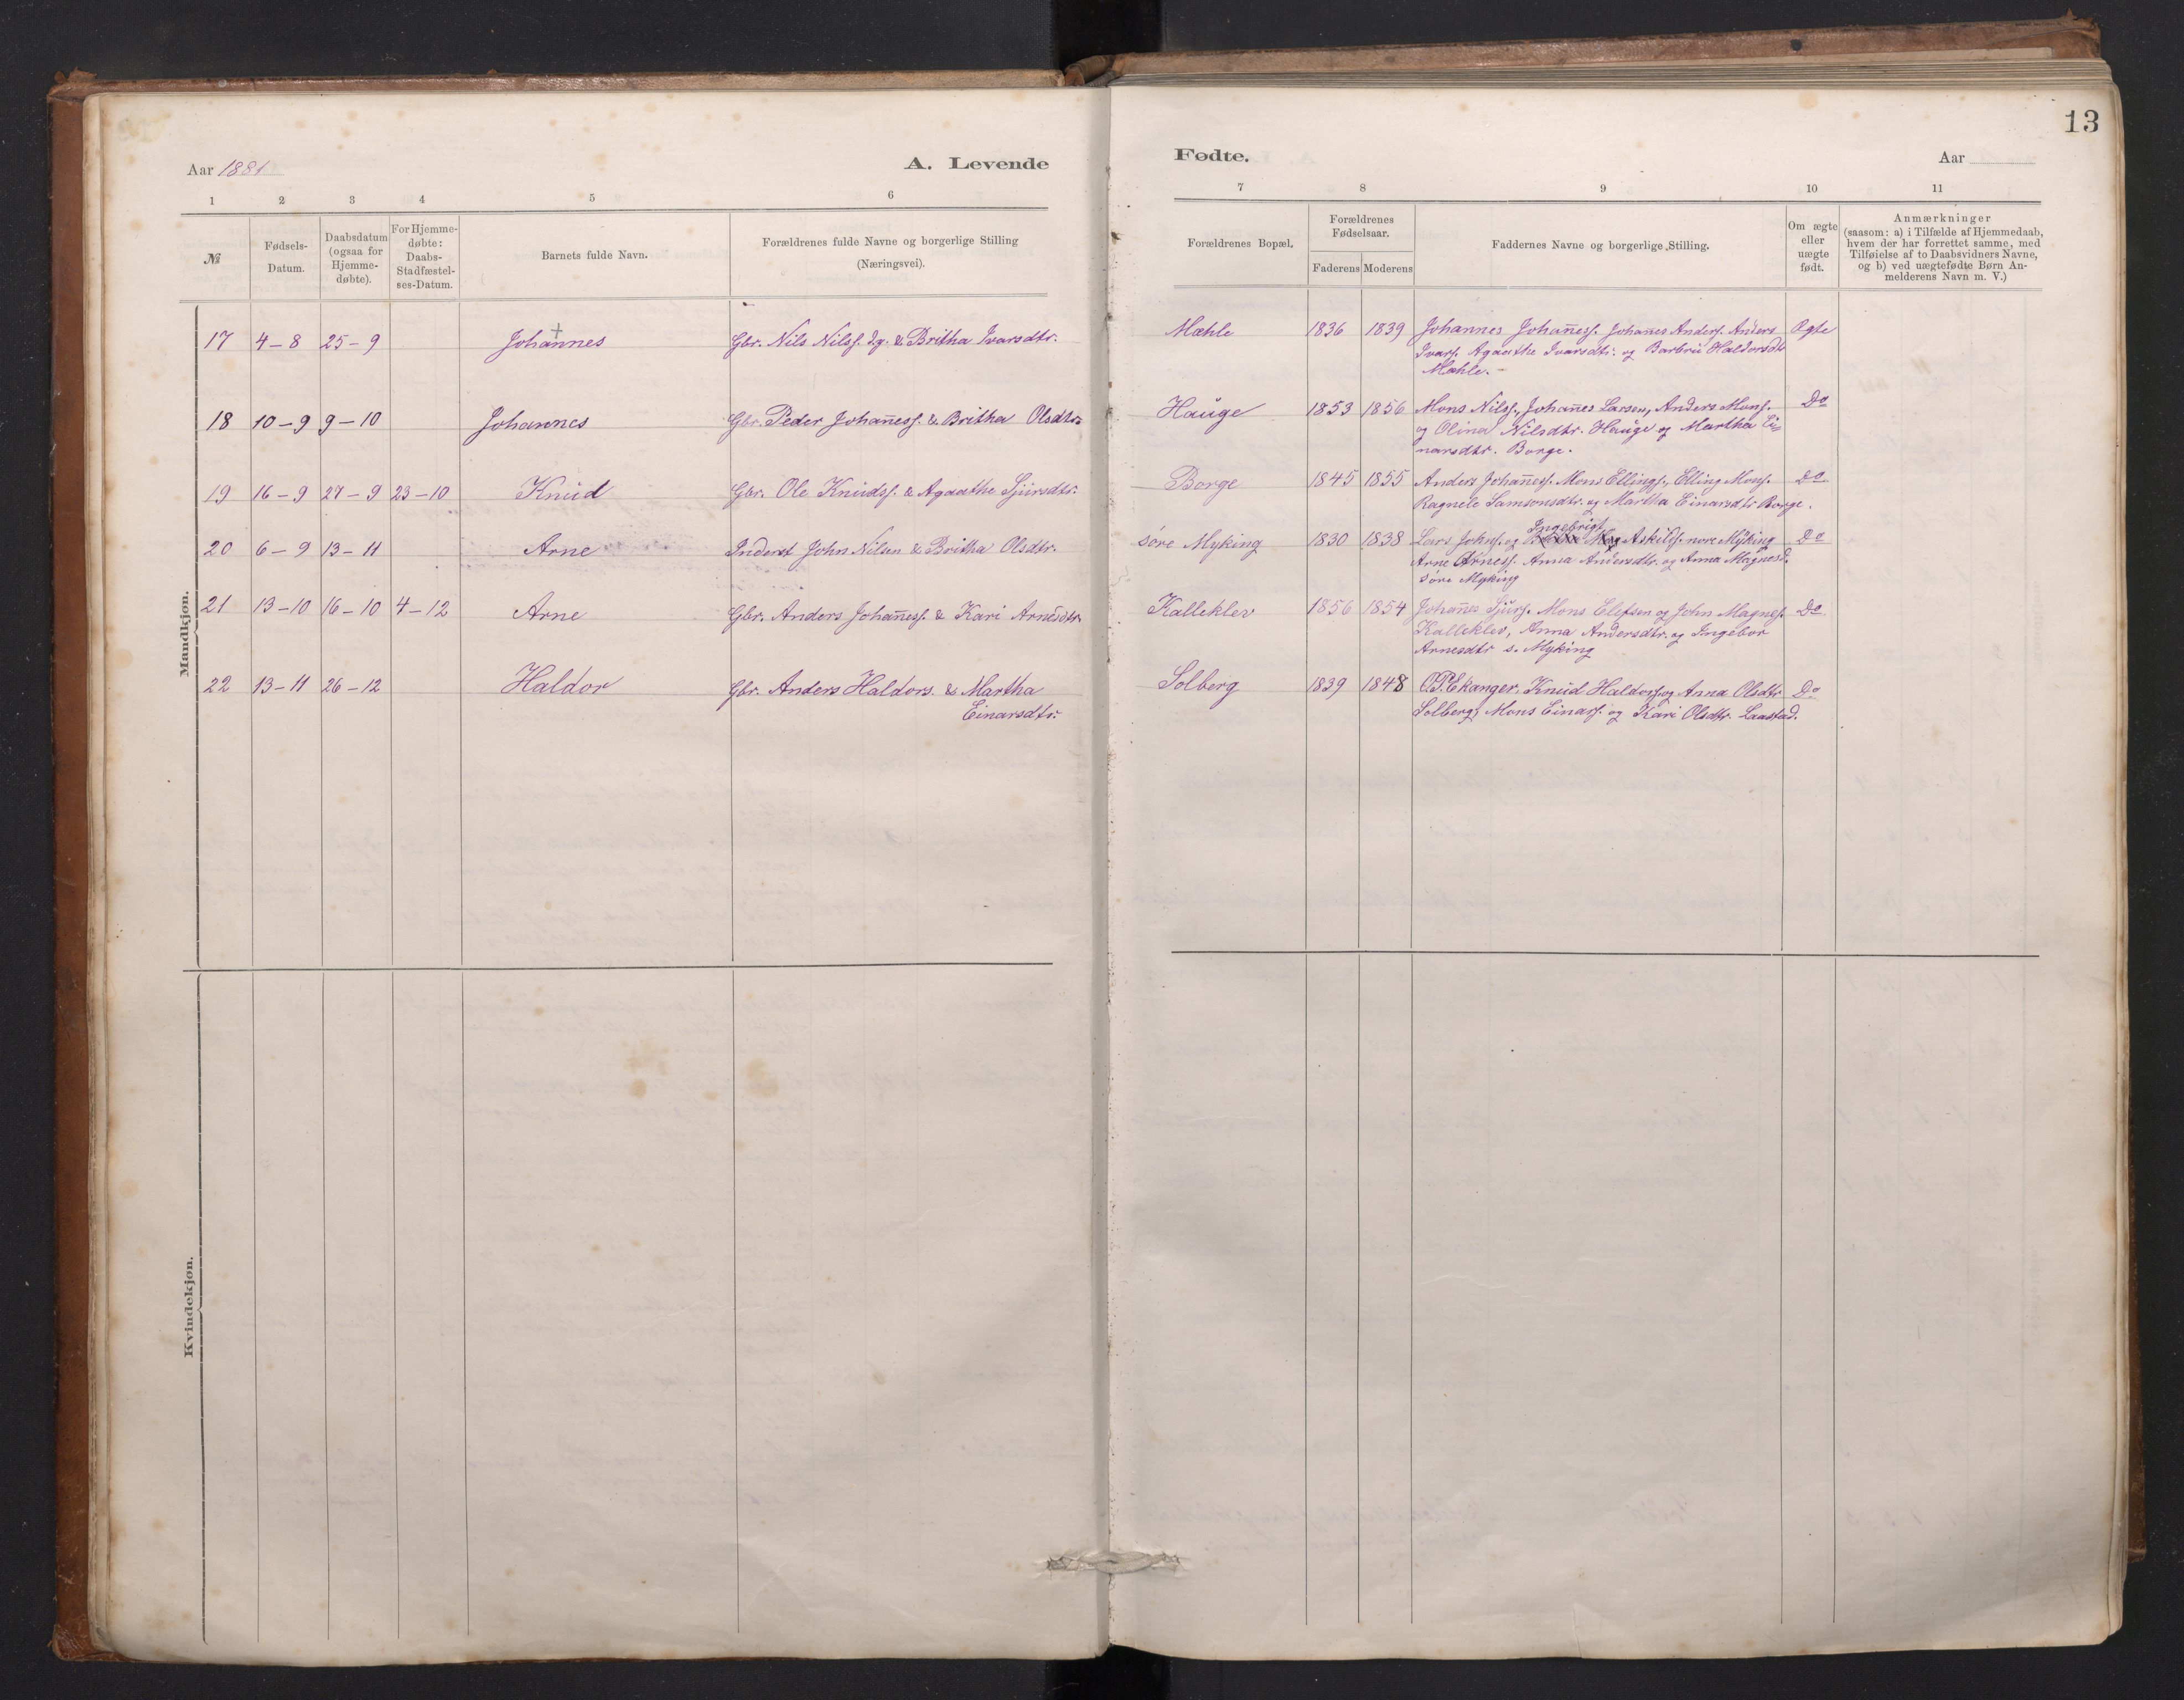 13
Aar 1881
A. Levende
Fødte.
Aar
1 2 3 4 5 6
7 8 9 10 11
№
Fødsels-Datum.
Daabsdatum (ogsaa for Hjemme-døbte).
For Hjemme-døbte: Daabs-Stadfæstel-ses-Datum.
Barnets fulde Navn.
Forældrenes fulde Navne og borgerlige Stilling
(Næringsvei).
Forældrenes Bopæl.
Forældrenes Fødselsaar.
Faderens Moderens
Faddernes Navne og borgerlige Stilling.
Om ægte eller uægte født.
Anmærkninger
(saasom: a) i Tilfælde af Hjemmedaab,
hvem der har forrettet samme, med
Tilføielse af to Daabsvidners Navne,
og b) ved uægtefødte Børn An-
melderens Navn m. V.)
Mandkjøn.
17 4-8 25-9 Johannes + Gbr. Nils Nilss. d.y. & Britha Ivarsdtr.
Mæhle 1836 1839 Johannes Johan̄ess. Johan̄es Anders. Anders Ægte
Ivars. Agaethe Ivarsdtr. og Barbru Haldorsdtr
Mæhle.
18 10-9 9-10 Johannes Gbr. Peder Johan̄ess. & Britha Olsdtr.
Hauge 1853 1856 Mons Nilss., Johan̄es Larsen, Anders Mons. Do
og Olina Nilsdtr. Hauge og Martha Ei=
narsdtr. Borge.
19 16-9 27-9 23-10 Knud Gbr. Ole Knudss. & Agaathe Sjursdtr.
Borge 1845 1855 Anders Johan̄ess. Mons Ellings., Elling Mons. Do
Ragnele Samsonsdtr. og Martha Einarsdtr Borge.
20 6-9 13-11 Arne Inderst John Nilsen & Britha Olsdtr.
Ingebrigt
søre Myking 1830 1838 Lars Johns. og Askilds. nore Myking Do
Arne Arness. Anna Andersdtr. og Anna Magnesd.
søre Myking
21 13-10 16-10 4-12 Arne Gbr. Anders Johan̄ess. & Kari Arnesdtr.
Kalleklev 1856 1854 Johan̄es Sjurs. Mons Elefsen og John Magness. Do
Kalleklev, Anna Andersdtr. og Ingebor
Arnesdtr s. Myking
22 13-11 26-12 Haldor Gbr. Anders Haldors. & Martha
Einarsdtr.
Solberg 1839 1848 O.P. Ekanger, Knud Haldors. og Anna Olsdtr Do
Solberg, Mons Einars. og Kari Olsdtr. Laastad.
Kvindekjøn.